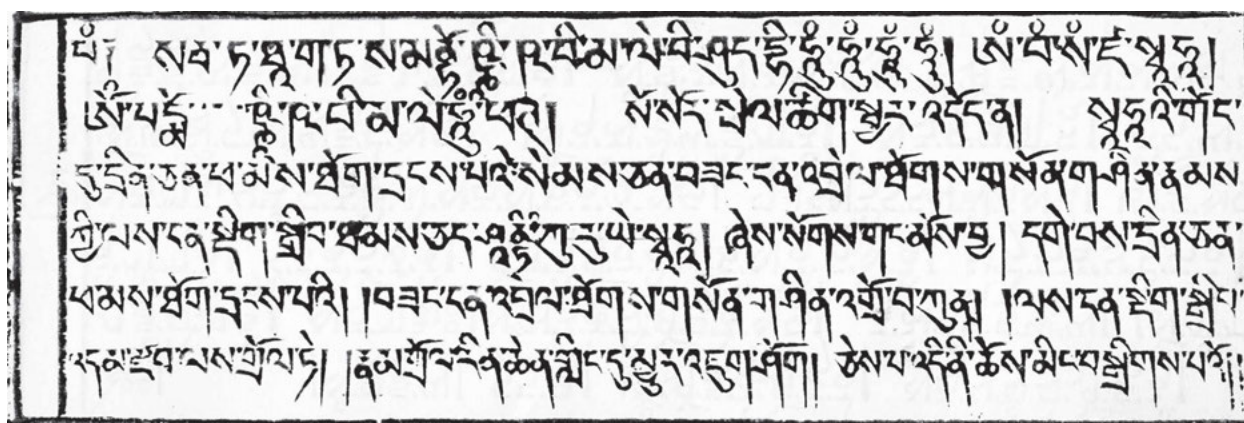 པཾ༔ སརྦ་ཏ་ཐཱ་ག་ཏ་ས་མནྟོ་ཥྞཱི་ཥ་བི་མ་ལེ་བི་ཤུད་དྷེ་ཧཱུྃ་ཧཱུྃ་ཧཱུྃ་ཧཱུྃ། ཨཾ་བཾ་སཾ་ཛཿ་སྭཱ་ཧཱ།
ཨོཾ་པདྨོ་ ཥྞཱི་ཥ་བི་མ་ལེ་ཧཱུྃ་ཕཊ། སོ་སོར་སྤེལ་ཚིག་སྦྱར་འདོད་ན། སྭཱ་ཧཱའི་གོང་
དུ་དྲིན་ཅན་ཕ་མིས་ཐོག་དྲངས་པའི་སེམས་ཅན་བཟང་ངན་འབྲེལ་ཐོགས་གསོན་གཤིན་རྣམས་
ཀྱི་ལས་ངན་སྡིག་སྒྲིབ་ཐམས་ཅད་ཤཱནྟིཾ་ཀུ་རུ་ཡེ་སྭཱ་ཧཱ། ཞེས་སོགས་གང་མོས་བྱ། དགེ་བས་དྲིན་ཅན་
ཕ་མས་ཐོག་དྲངས་པའི། །བཟང་ངན་འབྲེལ་ཐོགས་གསོན་གཤིན་འགྲོ་བ་ཀུན། །ལས་ངན་སྡིག་སྒྲིབ་
འདམ་རྫབ་ལས་གྲོལ་ཏེ། །རྣམ་གྲོལ་རིན་ཆེན་གླིང་དུ་མྱུར་འཇུག་ཤོག། ཅེས་པ་འདི་ནི་ཆོས་མིང་བསྒྲིགས་པའོ།།